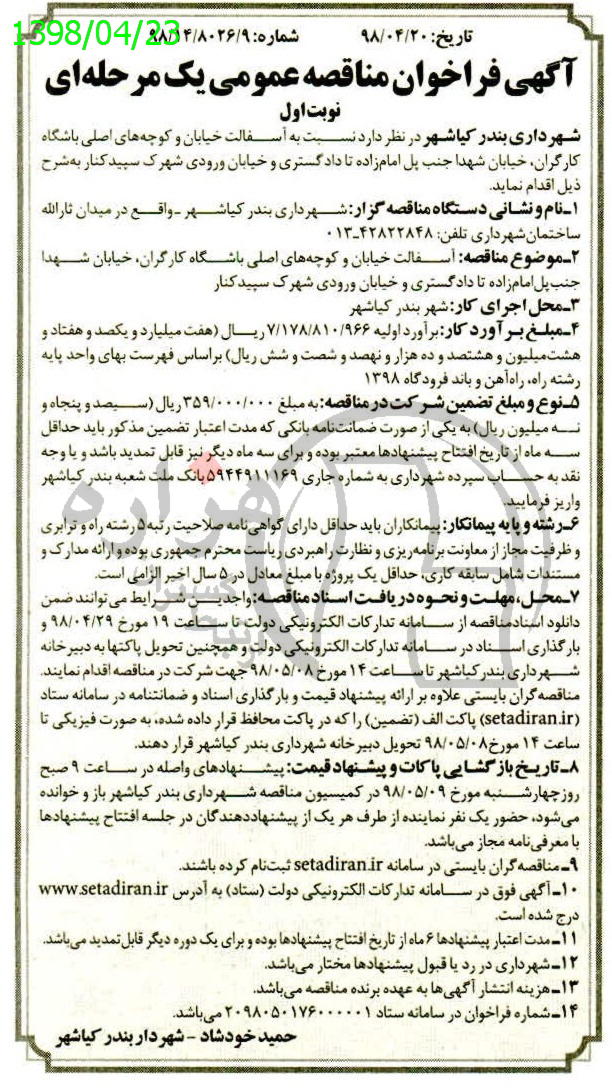 1398/04/23
تاریخ: ۹۸/۰۴/۲۰ شماره: ۹۸/۱۴/۸۰۲۶/۹
آگهی فراخوان مناقصه عمومی یک مرحله‌ای
نوبت اول
شهرداری بندر کیاشهر در نظر دارد نسبت به آسفالت خیابان و کوچه‌های اصلی باشگاه
کارگران، خیابان شهدا جنب پل امامزاده تا دادگستری و خیابان ورودی شهرک سپیدکنار به‌شرح
ذیل اقدام نماید.
۱ـ نام و نشانی دستگاه مناقصه گزار: شهرداری بندر کیاشهر ـ واقع در میدان ثارالله
ساختمان شهرداری تلفن: ۴۲۸۲۲۸۴۸ـ۰۱۳
۲ـ موضوع مناقصه: آسفالت خیابان و کوچه‌های اصلی باشگاه کارگران، خیابان شهدا
جنب پل امامزاده تا دادگستری و خیابان ورودی شهرک سپیدکنار
۳ـ محل اجرای کار: شهر بندر کیاشهر
۴ـ مبلغ برآورد کار: برآورد اولیه ۷/۱۷۸/۸۱۰/۹۶۶ ریال (هفت میلیارد و یکصد و هفتاد و
هشت میلیون و هشتصد و ده هزار و نهصد و شصت و شش ریال) براساس فهرست بهای واحد پایه
رشته راه، راه‌آهن و باند فرودگاه ۱۳۹۸
۵ـ نوع و مبلغ تضمین شرکت در مناقصه: به مبلغ ۳۵۹/۰۰۰/۰۰۰ ریال (سیصد و پنجاه و
نه میلیون ریال) به یکی از صورت ضمانت‌نامه بانکی که مدت اعتبار تضمین مذکور باید حداقل
سه ماه از تاریخ افتتاح پیشنهادها معتبر بوده و برای سه ماه دیگر نیز قابل تمدید باشد و یا وجه
نقد به حساب سپرده شهرداری به شماره جاری ۵۹۴۴۹۱۱۱۶۹ بانک ملت شعبه بندر کیاشهر
واریز فرمایید.
۶ـ رشته و پایه پیمانکار: پیمانکاران باید حداقل دارای گواهی‌نامه صلاحیت رتبه ۵ رشته راه و ترابری
و ظرفیت مجاز از معاونت برنامه‌ریزی و نظارت راهبردی ریاست محترم جمهوری بوده و ارائه مدارک و
مستندات شامل سابقه کاری، حداقل یک پروژه با مبلغ معادل در ۵ سال اخیر الزامی است.
۷ـ محل، مهلت و نحوه دریافت اسناد مناقصه: واجدین شرایط می‌توانند ضمن
دانلود اسناد مناقصه از سامانه تدارکات الکترونیکی دولت تا ساعت ۱۹ مورخ ۹۸/۰۴/۲۹ و
بارگذاری اسناد در سامانه تدارکات الکترونیکی دولت و همچنین تحویل پاکتها به دبیرخانه
شهرداری بندر کیاشهر تا ساعت ۱۴ مورخ ۹۸/۰۵/۰۸ جهت شرکت در مناقصه اقدام نمایند.
مناقصه‌گران بایستی علاوه بر ارائه پیشنهاد قیمت و بارگذاری اسناد و ضمانتنامه در سامانه ستاد
(setadiran.ir) پاکت الف (تضمین) را که در پاکت محافظ قرار داده شده، به صورت فیزیکی تا
ساعت ۱۴ مورخ ۹۸/۰۵/۰۸ تحویل دبیرخانه شهرداری بندر کیاشهر قرار دهند.
۸ـ تاریخ بازگشایی پاکات و پیشنهاد قیمت: پیشنهادهای واصله در ساعت ۹ صبح
روز چهارشنبه مورخ ۹۸/۰۵/۰۹ در کمیسیون مناقصه شهرداری بندر کیاشهر باز و خوانده
می‌شود، حضور یک نفر نماینده از طرف هر یک از پیشنهاددهندگان در جلسه افتتاح پیشنهادها
با معرفی‌نامه مجاز می‌باشد.
۹ـ مناقصه‌گران بایستی در سامانه setadiran.ir ثبت‌نام کرده باشند.
۱۰ـ آگهی فوق در سامانه تدارکات الکترونیکی دولت (ستاد) به آدرس www.setadiran.ir
درج شده است.
۱۱ـ مدت اعتبار پیشنهادها ۶ ماه از تاریخ افتتاح پیشنهادها بوده و برای یک دوره دیگر قابل تمدید می‌باشد.
۱۲ـ شهرداری در رد یا قبول پیشنهادها مختار می‌باشد.
۱۳ـ هزینه انتشار آگهی‌ها به عهده برنده مناقصه می‌باشد.
۱۴ـ شماره فراخوان در سامانه ستاد ۲۰۹۸۰۵۰۱۷۶۰۰۰۰۰۱ می‌باشد.
حمید خودشاد - شهردار بندر کیاشهر